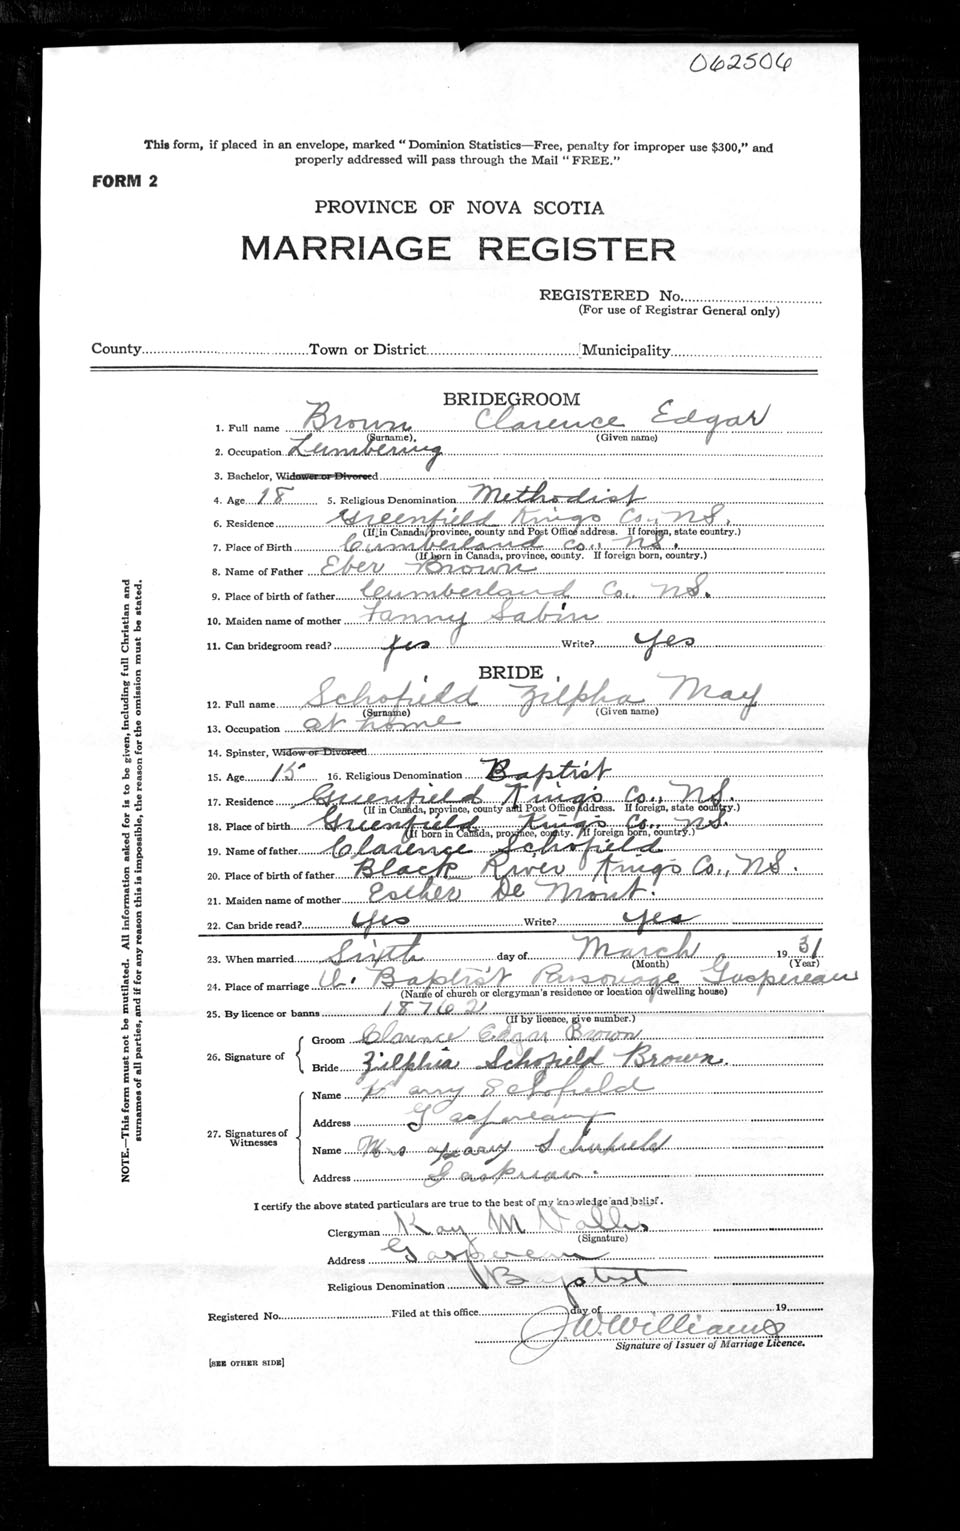 062506
This form, if placed in an envelope, marked "Dominion Statistics—Free, penalty for improper use $300," and
properly addressed will pass through the Mail "FREE."
FORM 2
PROVINCE OF NOVA SCOTIA
MARRIAGE REGISTER
REGISTERED No.
(For use of Registrar General only)
County Town or District Municipality
BRIDEGROOM
1. Full name Brown Clarence Edgar
(Surname), (Given name)
2. Occupation Lumbering
3. Bachelor, Widower or Divorced
4. Age 18 5. Religious Denomination Methodist
6. Residence Greenfield Kings Co., N.S.
(If in Canada, province, county and Post Office address. If foreign, state country.)
7. Place of Birth Cumberland Co., N.S.
(If born in Canada, province, county. If foreign born, country.)
8. Name of Father Eber Brown
9. Place of birth of father Cumberland Co., N.S.
10. Maiden name of mother Fanny Sabin
11. Can bridegroom read? yes Write? yes
BRIDE
12. Full name Schofield Zilpha May
(Surname) (Given name)
13. Occupation at home
14. Spinster, Widow or Divorced
15. Age 15 16. Religious Denomination Baptist
17. Residence Greenfield Kings Co., N.S.
(If in Canada, province, county and Post Office Address. If foreign, state country.)
18. Place of birth Greenfield Kings Co., N.S.
(If born in Canada, province, county. If foreign born, country.)
19. Name of father Clarence Schofield
20. Place of birth of father Black River Kings Co., N.S.
21. Maiden name of mother Esther De Mont.
22. Can bride read? yes Write? yes
23. When married Sixth day of March 1931
(Month) (Year)
24. Place of marriage U. Baptist Parsonage Gaspereau
(Name of church or clergyman's residence or location of dwelling house)
25. By licence or banns 18762
(If by licence, give number.)
26. Signature of Groom Clarence Edgar Brown
Bride Zilphia Schofield Brown.
27. Signatures of Witnesses Name Harry Schofield
Address Gaspereau
Name Mrs Harry Schofield
Address Gaspereau.
I certify the above stated particulars are true to the best of my knowledge and belief.
Clergyman M
(Signature)
Address Gaspereau
Religious Denomination Baptist
Registered No. Filed at this office day of 19
J.W. Williams
Signature of Issuer of Marriage Licence.
[SEE OTHER SIDE]
NOTE.—This form must not be mutilated. All information asked for is to be given, including full Christian and
surnames of all parties, and if for any reason this is impossible, the reason for the omission must be stated.